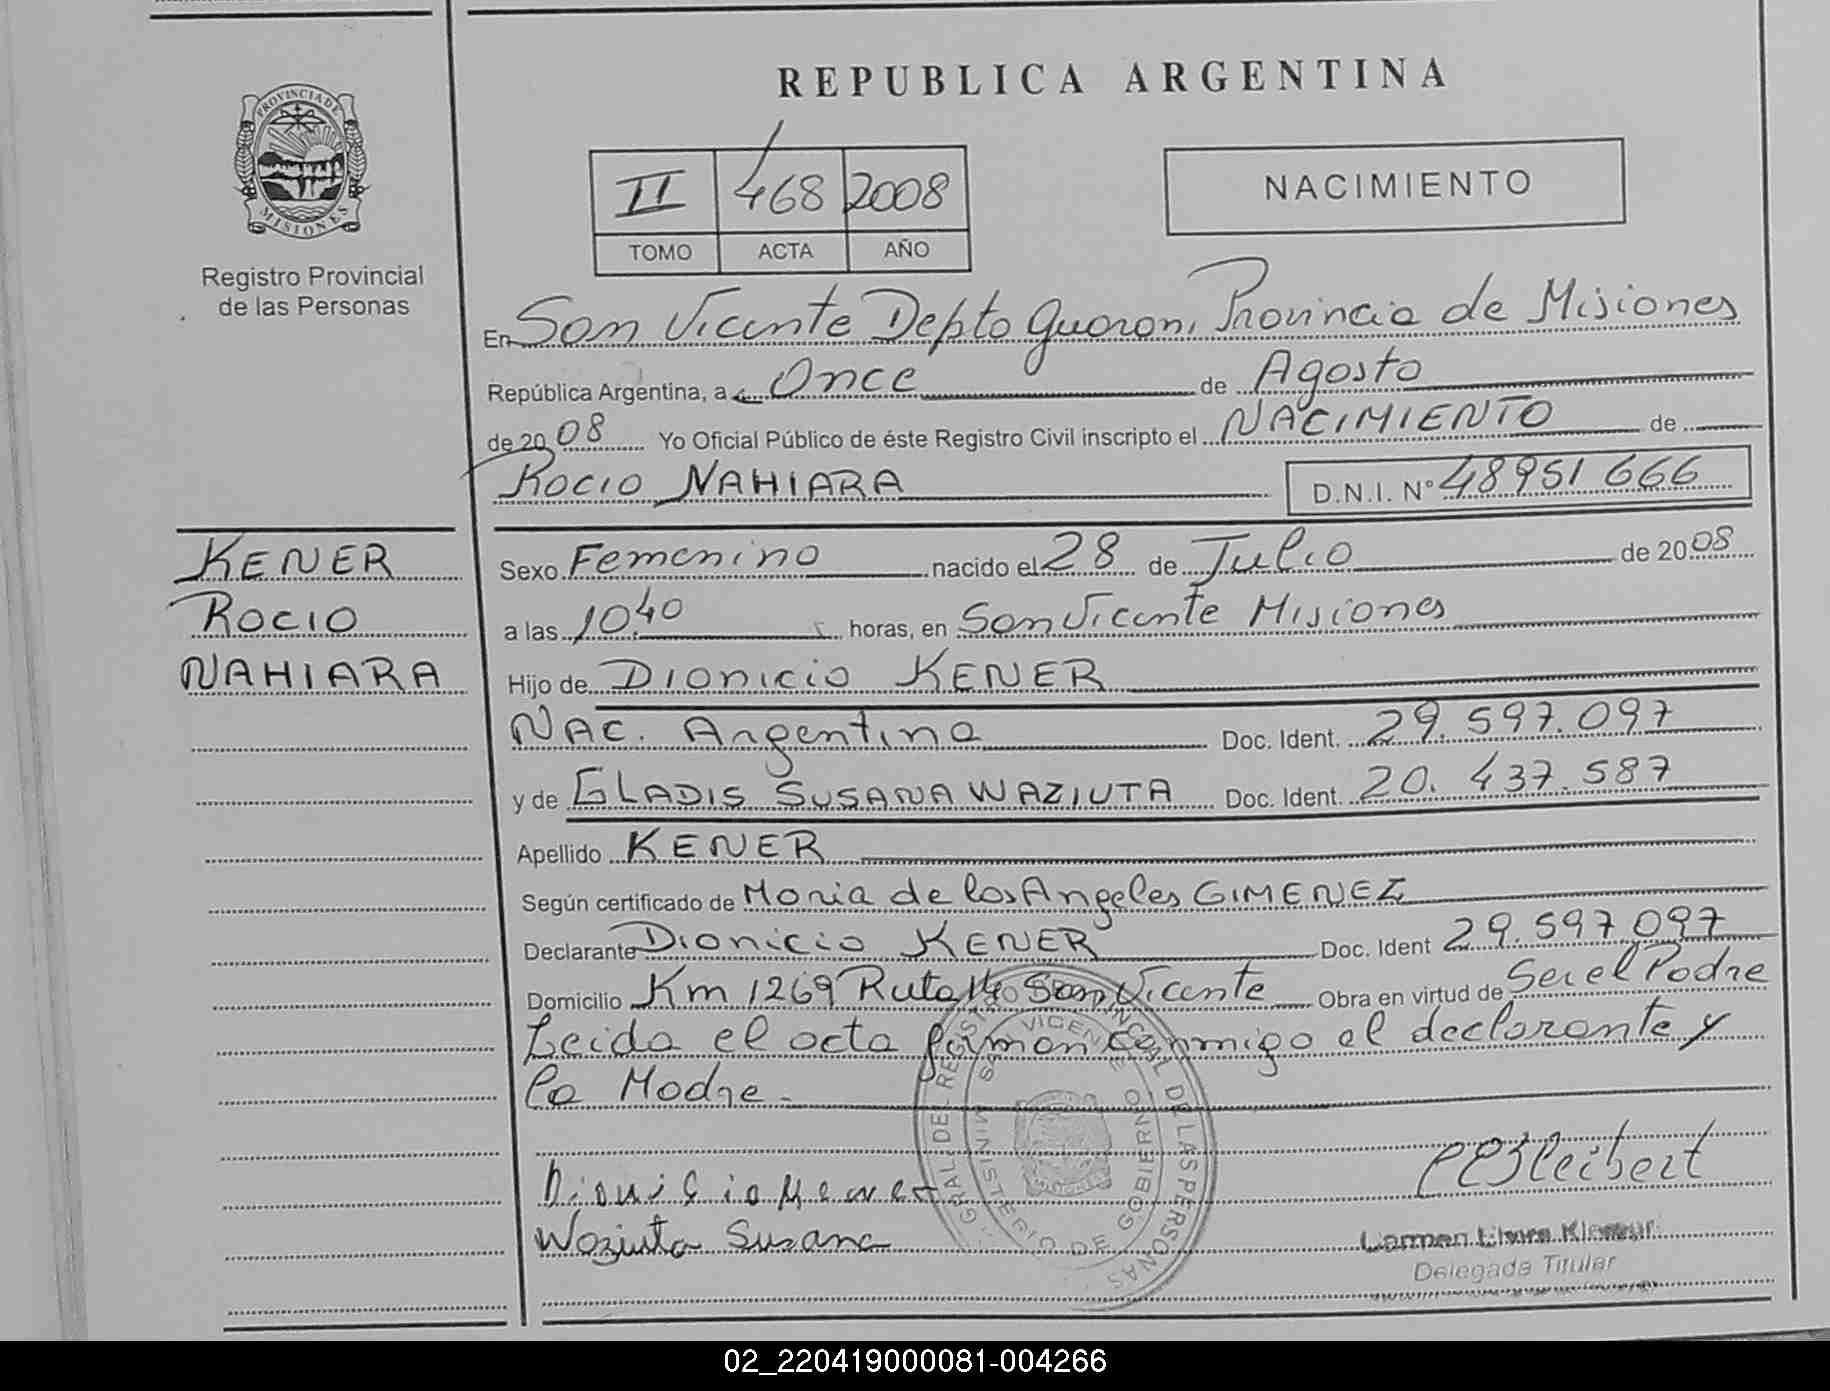 REPUBLICA ARGENTINA
PROVINCIA DE
MISIONES
Registro Provincial
de las Personas
II 468 2008
TOMO ACTA AÑO
NACIMIENTO
En San Vicente Depto Guaraní Provincia de Misiones
República Argentina, a Once de Agosto
de 2008 Yo Oficial Público de éste Registro Civil inscripto el NACIMIENTO de
ROCIO NAHIARA D.N.I. N° 48951 666
KENER
ROCIO
NAHIARA
Sexo Femenino nacido el 28 de Julio de 2008
a las 10.40 horas, en San Vicente Misiones
Hijo de Dionicio KENER
NAC. Argentina Doc. Ident. 29.597.097
y de GLADIS SUSANA WAZIUTA Doc. Ident. 20.437.587
Apellido KENER
Según certificado de Maria de los Angeles GIMENEZ
Declarante Dionicio KENER Doc. Ident 29.597.097
Domicilio Km 1269 Ruta 14 San Vicente Obra en virtud de Ser el Padre
Leida el acta firman conmigo el declarante y
la Madre.
Dionicio Kener
Waziuta Susana
Carmen
Delegada Titular
02_220419000081-004266